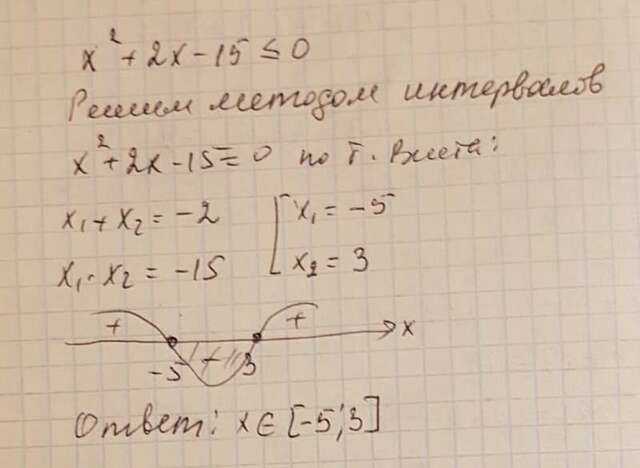 x² + 2x - 15 ≤ 0
Решим методом интервалов
x² + 2x - 15 = 0 по т. Виета:
x₁ + x₂ = -2 [ x₁ = -5
x₁ · x₂ = -15 x₂ = 3
+ - + x
-5 3
Ответ: x ∈ [-5; 3]